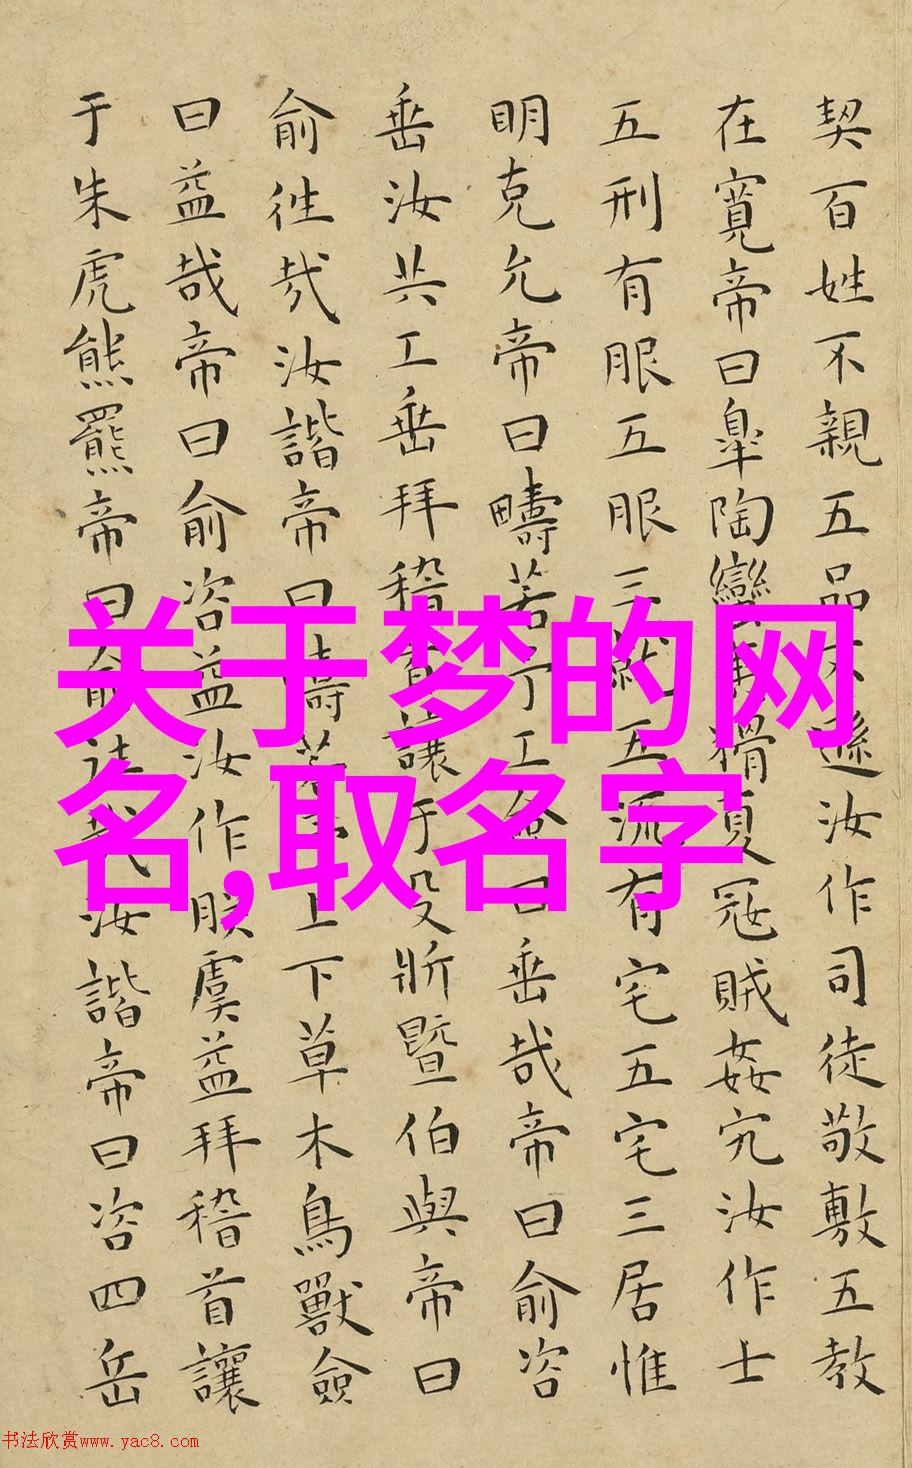 契百姓不親五品不遜汝作司徒敬敷五教
在寬帝曰皐陶蠻夷猾夏冦賊姦宄汝作士
五刑有服五服三就五流有宅五宅三居惟
明克允帝曰疇若予工僉曰垂哉帝曰俞咨
垂汝共工垂拜稽首讓于殳斨暨伯與帝曰
俞往哉汝諧帝曰疇若予上下草木鳥獸僉
曰益哉帝曰俞咨益汝作朕虞益拜稽首讓
于朱虎熊羆帝曰俞往哉汝諧帝曰咨四岳
关于梦的网
名,取名字
书法欣赏www.yac8.com